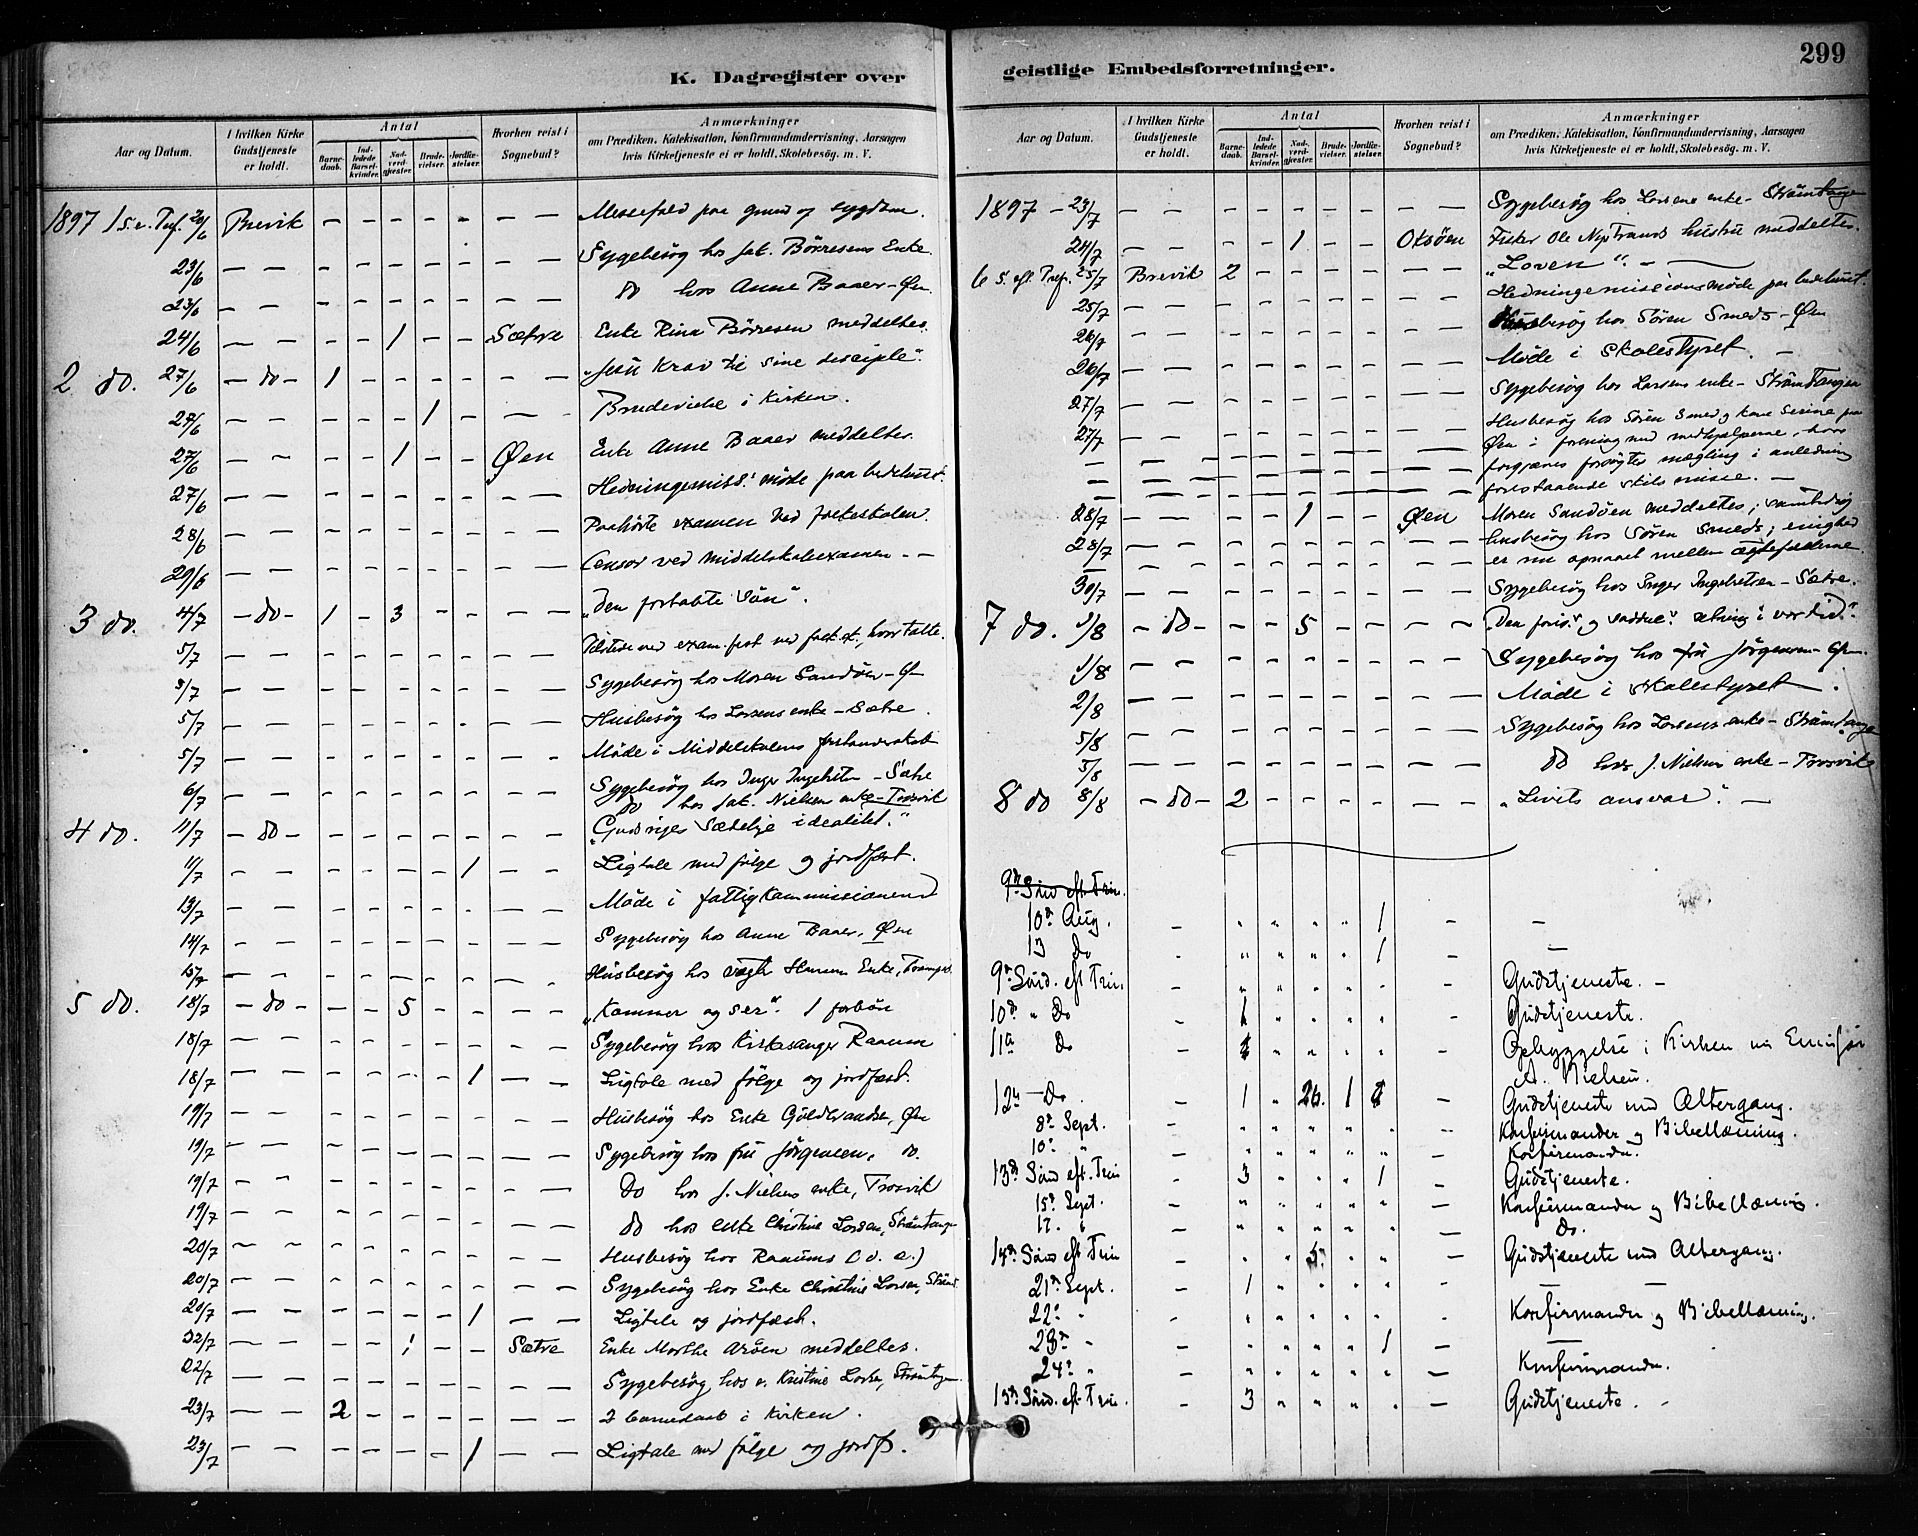 299
K. Dagregister over
geistlige Embedsforretninger.
Aar og Datum.
I hvilken Kirke Gudstjeneste er holdt.
Antal
Barnedaab.
Indledede Barselkvinder.
Nadverdgjæster.
Brudevielser.
Jordfæstelser.
Hvorhen reist i Sognebud?
Anmærkninger
om Prædiken, Katekisation, Konfirmandundervisning, Aarsagen
hvis Kirketjeneste ei er holdt, Skolebesög. m. V.
1897 1 S. e. Tref. 20/6 Brevik – – – – – – – Messefald paa grund af sygdom.
23/6 – – – – – – – – – Sygebesög hos Jak. Börresens Enke.
23/6 – – – – – – – – – do hos Anne Baaer – Øen.
24/6 – – – – 1 – – Sætre Enke Rina Börresen meddeltes.
2 do. 27/6 – do – 1 – – – – – – "Jesu Krav til sine disciple".
27/6 – – – – – 1 – – – Brudevielse i Kirken.
27/6 – – – – 1 – – Øen Enke Anne Baaer meddeltes.
27/6 – – – – – – – – – Hedningemiss. möde paa bedehuset.
28/6 – – – – – – – – – Paahörte examen ved folkeskolen.
29/6 – – – – – – – – – Censor ved middelskoleexamen. –
3 do. 4/7 – do – 1 – 3 – – – – "Den fortabte Sön".
5/7 – – – – – – – – – Tilstede ved exam. fest ved folkesk., hvor talte.
5/7 – – – – – – – – – Sygebesög hos Maren Sandöen – Øen
5/7 – – – – – – – – – Husbesög hos Larsens enke – Sætre.
5/7 – – – – – – – – – Möde i Middelskolens forstanderskab
6/7 – – – – – – – – – Sygebesög hos Inger Ingebretsen – Sætre
do hos Jak. Nielsens enke – Trosvik
4 do. 11/7 – do – – – – – – – – "Gudsriges sædelige idealitet."
11/7 – – – – – – 1 – – Ligtale med fölge og jordfæst.
13/7 – – – – – – – – – Möde i fattigkommissionen
14/7 – – – – – – – – – Sygebesög hos Anne Baaer, Øen
15/7 – – – – – – – – – Husbesög hos vægter Enke,
5 do. 18/7 – do – – – 5 – – – – "Kommer og ser". 1 forbön
18/7 – – – – – – – – – Sygebesög hos Kirkesanger Raaum
18/7 – – – – – – 1 – – Ligtale med fölge og jordfæst.
19/7 – – – – – – – – – Husbesög hos Enke Guldbrandsen, Øen
19/7 – – – – – – – – – Sygebesög hos fru Jörgensen, do.
19/7 – – – – – – – – – Do hos J. Nielsens enke, Trosvik
19/7 – – – – – – – – – do hos enke Christine Larsen, Strömtangen
20/7 – – – – – – – – – Husbesög hos Raaums (o. a.)
20/7 – – – – – – – – – Sygebesög hos Enke Christine Larsen, Strömt
20/7 – – – – – – 1 – – Ligtale og jordfæst.
22/7 – – – – 1 – – Sætre Enke Marthe Aröen meddeltes.
22/7 – – – – – – – – – Sygebesög hos e. Kristine Larsen, Strömtangen
23/7 – – 2 – – – – – – 2 barnedaab i Kirken.
23/7 – – – – – – 1 – – Ligtale med fölge og jordf.
1897 – 23/7 – – – – – – – – – Sygebesög hos Larsens enke – Strömtangen
24/7 – – – – 1 – – Oksöen Fisker Ole Nystrands hustru meddeltes.
6 S. ef. Tref. 25/7 Brevik 2 – – – – – – "Loven". –
25/7 – – – – – – – – – Hedningemissionsmöde paa bedehuset.
26/7 – – – – – – – – – Husbesög hos Sören Smeds – Øen
26/7 – – – – – – – – – Möde i skolestyret. –
27/7 – – – – – – – – – Sygebesög hos Larsens enke – Strömtangen
27/7 – – – – – – – – – Husbesög hos Sören Smed og kone Serine paa
Øen i forening med medhjælperne, hvor
forgjæves forsögtes mægling i anledning
forestaaende skilsmisse. –
28/7 – – – – 1 – – Øen Maren Sandöen meddeltes; samtidig
28/7 – – – – – – – – – husbesög hos Sören Smeds; enighed
er nu opnaaet mellem ægtefællerne.
30/7 – – – – – – – – – Sygebesög hos Inger Ingebretsen – Sætre.
7 do. 1/8 – do – – – 5 – – – – "Den faris. og saddue. retning i vor tid".
1/8 – – – – – – – – – Sygebesög hos fru Jörgensen – Øen.
2/8 – – – – – – – – – Möde i skolestyret.
5/8 – – – – – – – – – Sygebesög hos Larsens enke – Strömtangen
5/8 – – – – – – – – – do hos J. Nielsens enke – Trosvik
8 do 8/8 – do – 2 – – – – – – "Livets ansvar". –
9de Sönd eft. Trin.
10de Aug. 1
13 Do 1
9de Sönd. eft Trin Gudstjeneste. –
10de " Do 1 Gudstjeneste.
11te Do Opbyggelse i Kirken
A. Nielsen.
12te Do 1 " 26. 1 Gudstjeneste med Altergang.
8de Sept. Konfirmander og Bibellæsning.
10de " Konfirmander.
13de Sönd eft. Trin 3 " " " 1 Gudstjeneste.
15de Sept. Konfirmander og Bibellæsning.
17. " Do.
14de Sönd eft Trin 5. Gudstjeneste med Altergang.
21de Sept. 1 – –
22de " Konfirmander og Bibellæsning.
23de " 1 –
24de " Konfirmander.
15de Sönd. eft Trin. 3 Gudstjeneste.